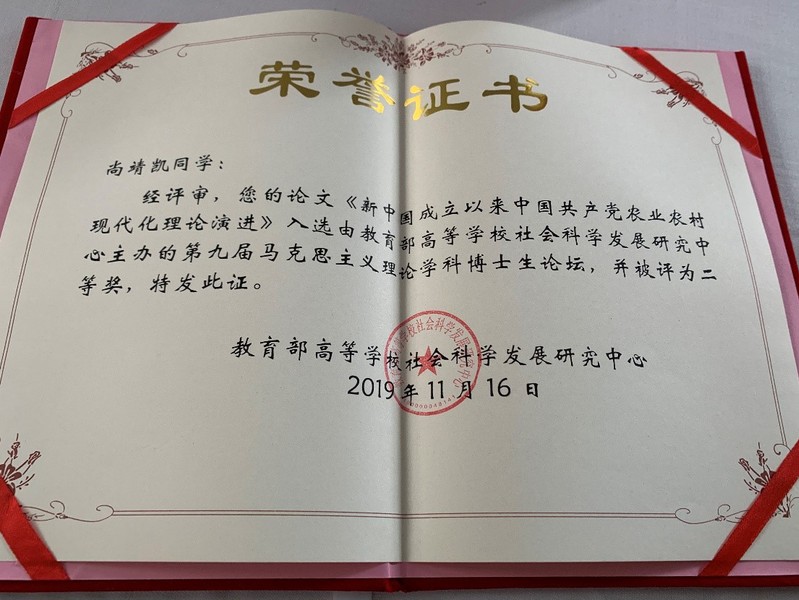 荣誉证书
尚靖凯同学：
经评审，您的论文《新中国成立以来中国共产党农业农村
现代化理论演进》入选由教育部高等学校社会科学发展研究中
心主办的第九届马克思主义理论学科博士生论坛，并被评为二
等奖，特发此证。
教育部高等学校社会科学发展研究中心
2019年11月16日